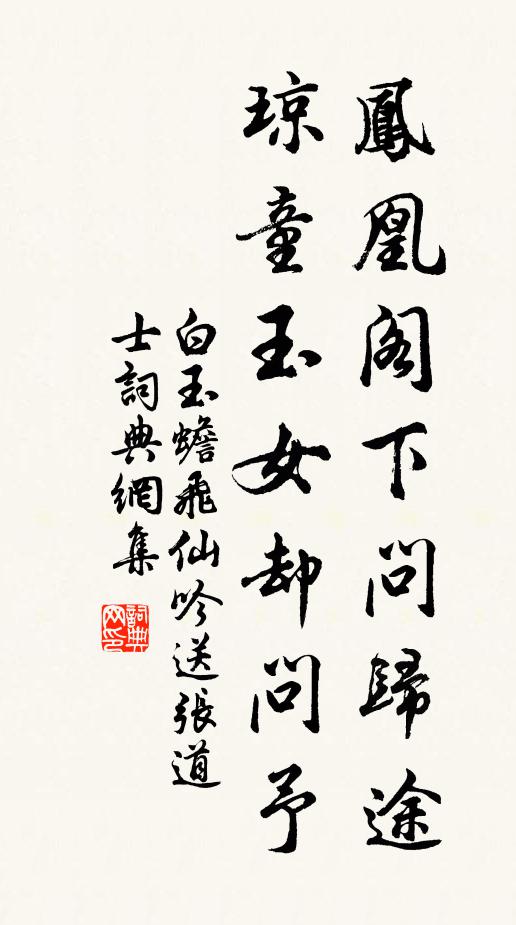 鳳凰閣下問歸途
琼童玉女却問予
白玉蟾飛仙吟送張道
士詞典網集
詞典网印